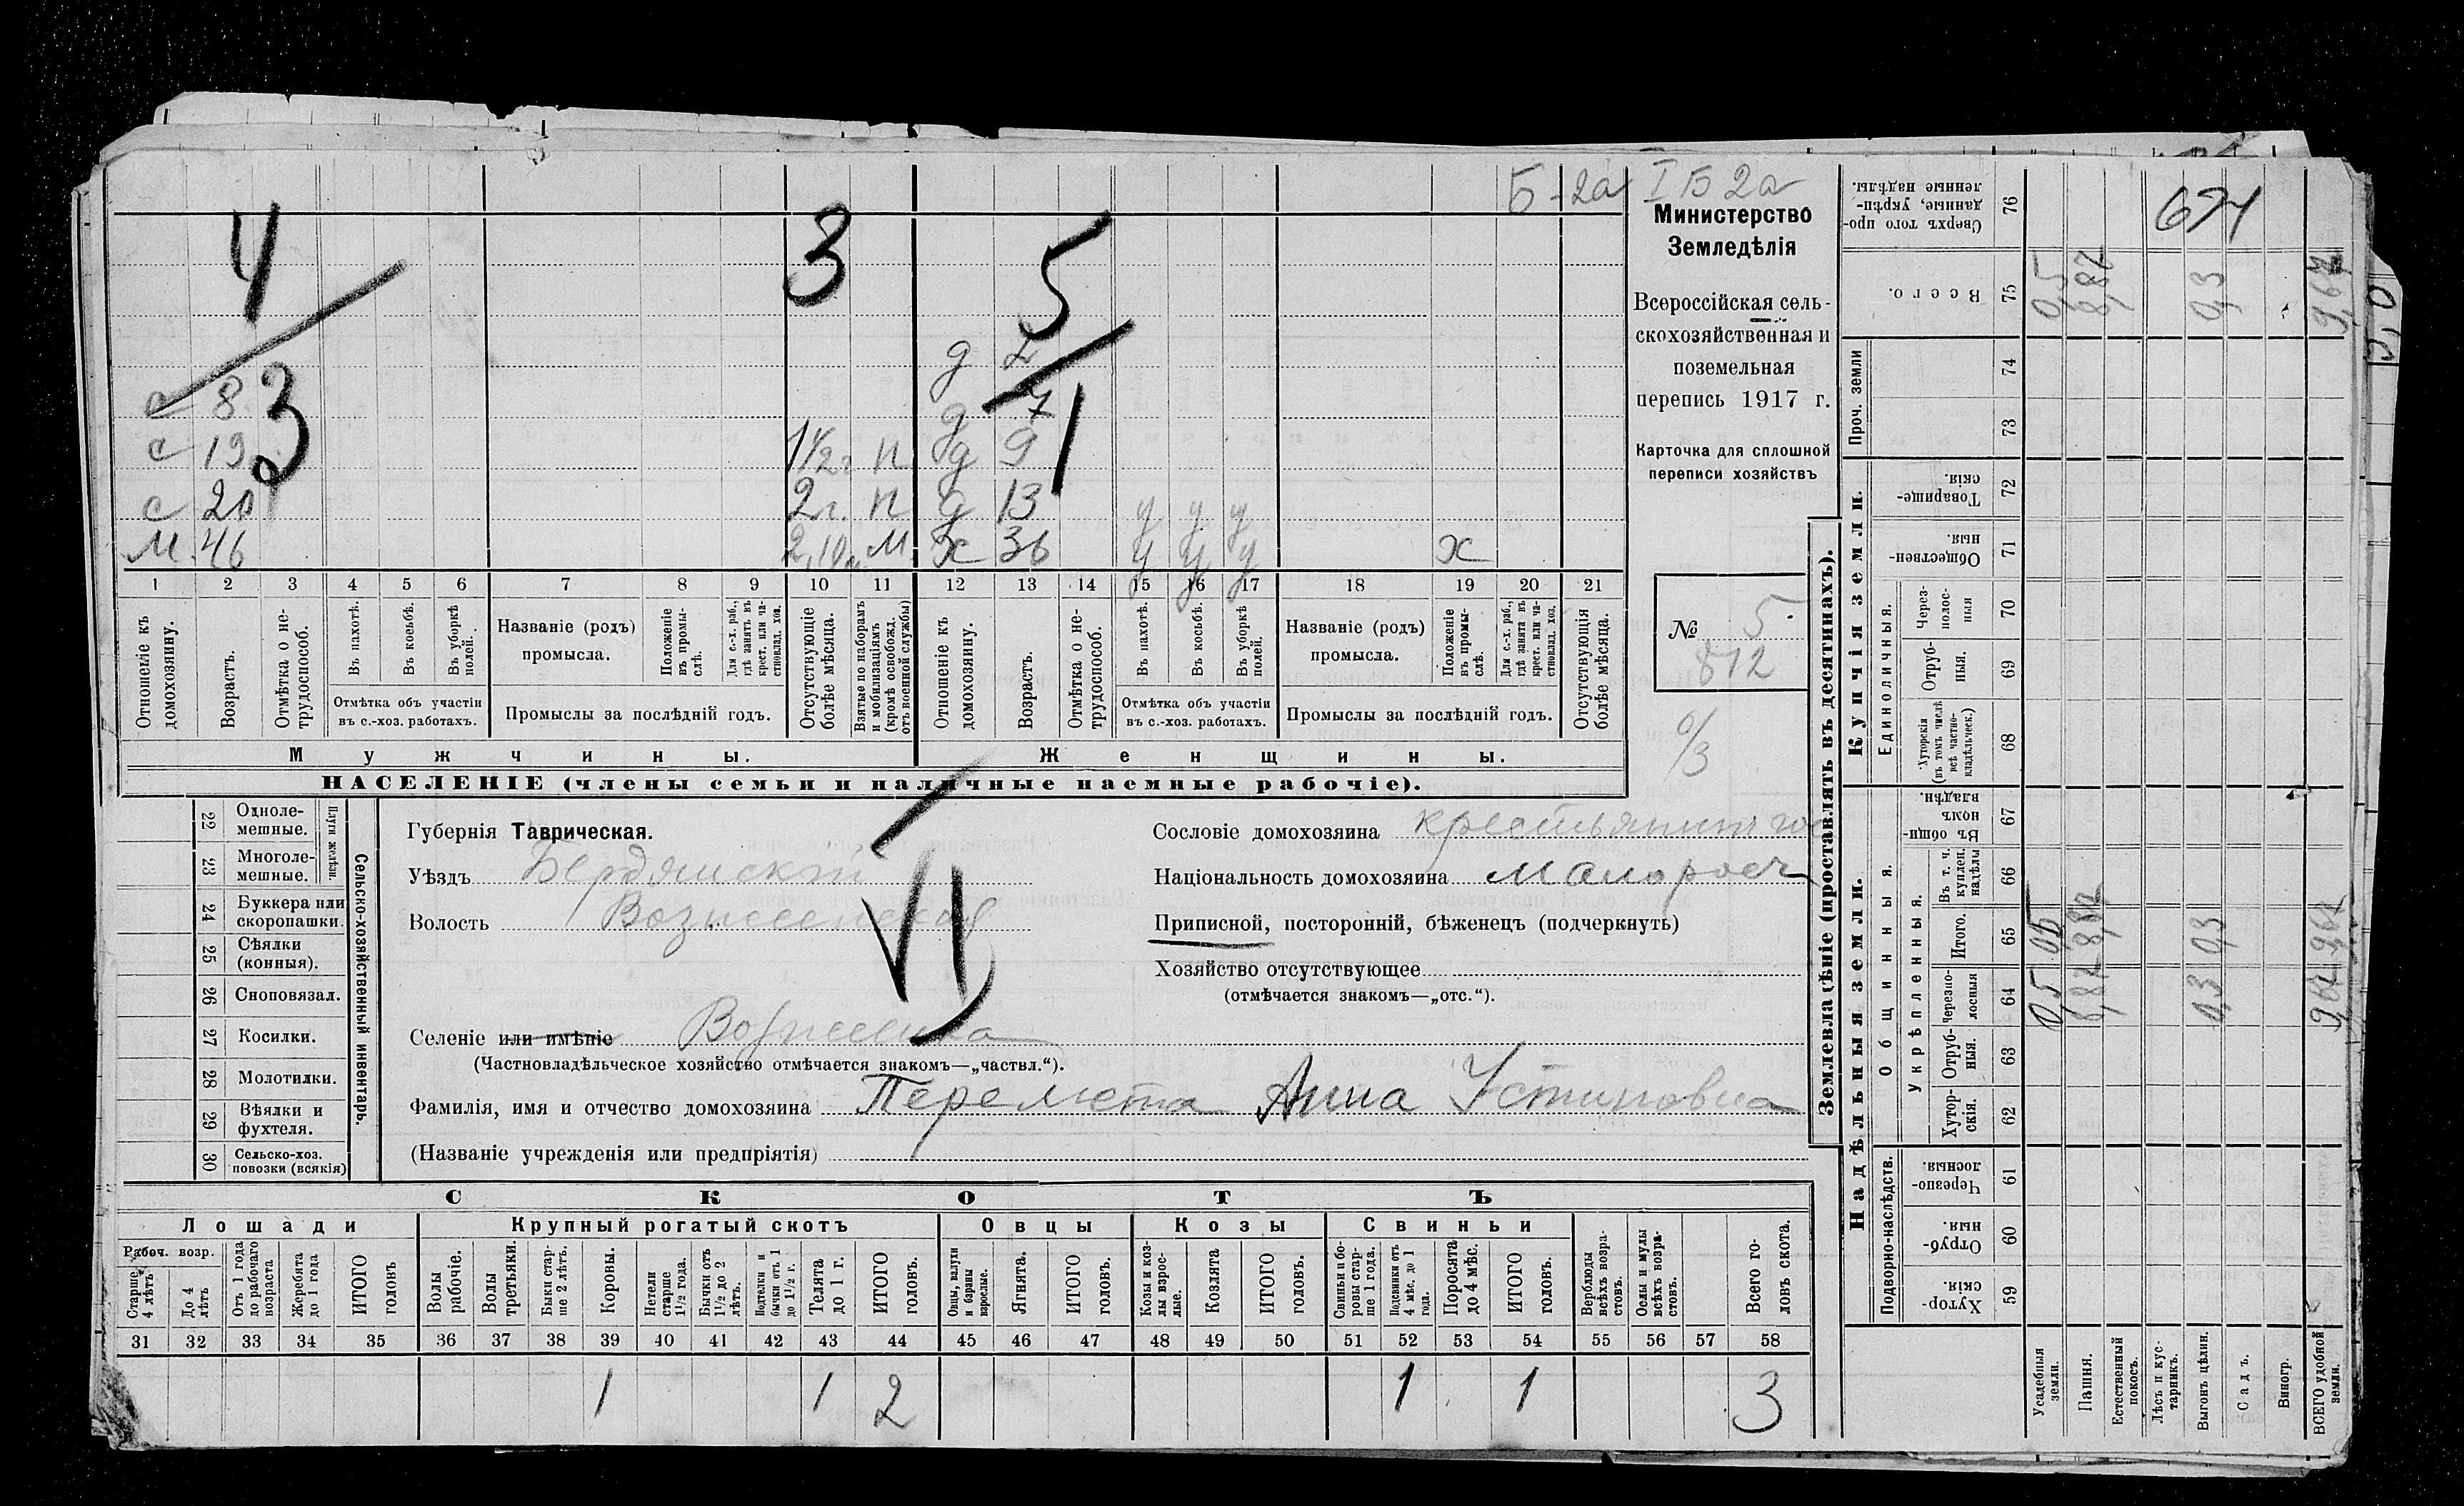 Б-2а I Б 2а
4 3 5
3 1
д 2
с 8 д 7
с 19 1 1/2 г п д 9
с 20 2 г. п д 13 у у у
м 46 м ж 36 у у у х
1 2 3 4 5 6 7 8 9 10 11 12 13 14 15 16 17 18 19 20 21
Отношеніе къ домохозяину.
Возрастъ.
Отмѣтка о нетрудоспособ.
Въ пахотѣ.
Въ косьбѣ.
Въ уборкѣ полей.
Отмѣтка объ участіи въ с.-хоз. работахъ.
Названіе (родъ) промысла.
Положеніе въ промыслѣ.
Для с.-х. раб., гдѣ занятъ въ крест. или частновлад. хоз.
Промыслы за послѣдній годъ.
Отсутствующіе болѣе мѣсяца.
Взятые по наборамъ и мобилизаціямъ (кромѣ освобожд. отъ военной службы)
Отношеніе къ домохозяину.
Возрастъ.
Отмѣтка о нетрудоспособ.
Въ пахотѣ.
Въ косьбѣ.
Въ уборкѣ полей.
Отмѣтка объ участіи въ с.-хоз. работахъ.
Названіе (родъ) промысла.
Положеніе въ промыслѣ.
Для с.-х. раб., гдѣ занята въ крест. или частновлад. хоз.
Промыслы за послѣдній годъ.
Отсутствующія болѣе мѣсяца.
Мужчины. Женщины.
НАСЕЛЕНІЕ (члены семьи и наличные наемные рабочіе).
Министерство
Земледѣлія
Всероссійская сель-
скохозяйственная и
поземельная
перепись 1917 г.
Карточка для сплошной
переписи хозяйствъ
№ 5
812
6/3
Сельско-хозяйственный инвентарь.
Плуги желѣзн.
22 Одноле-
мешные.
23 Многоле-
мешные.
24 Буккера или
скоропашки.
25 Сѣялки
(конныя).
26 Сноповязал.
27 Косилки.
28 Молотилки.
29 Вѣялки и
фухтеля.
30 Сельско-хоз.
повозки (всякія)
Губернія Таврическая.
Уѣздъ Бердянскій
Волость Вознесенская
VI
Селеніе или имѣніе Вознесенка
(Частновладѣльческое хозяйство отмѣчается знакомъ—„частвл.“).
Фамилія, имя и отчество домохозяина Перемета Анна Устиновна
(Названіе учрежденія или предпріятія)
Сословіе домохозяина крестьянин
Національность домохозяина малоросъ
Приписной, посторонній, бѣженецъ (подчеркнуть)
Хозяйство отсутствующее
(отмѣчается знакомъ—„отс.“).
СКОТЪ
Лошади Крупный рогатый скотъ Овцы Козы Свиньи
Рабоч. возр.
Старше 4 лѣтъ
До 4 лѣтъ
Отъ 1 года до рабочаго возраста
Жеребята до 1 года
ИТОГО головъ
Волы рабочіе.
Волы третьяки.
Быки старше 2 лѣтъ.
Коровы.
Нетели старше 1 1/2 года.
Бычки отъ 1 1/2 до 2 лѣтъ.
Подтелки и бычки отъ 1 до 1 1/2 г.
Телята до 1 г.
ИТОГО головъ.
Овцы, валухи и бараны взрослые.
Ягнята.
ИТОГО головъ.
Козы и козлы взрослые.
Козлята
ИТОГО головъ.
Свиньи и боровы старше 1 года.
Подсвинки отъ 4 мѣс. до 1 года.
Поросята до 4 мѣс.
ИТОГО головъ.
Верблюды всѣхъ возрастовъ.
Ослы и мулы всѣхъ возрастовъ.
Всего головъ скота.
31 32 33 34 35 36 37 38 39 40 41 42 43 44 45 46 47 48 49 50 51 52 53 54 55 56 57 58
1 1 2 1 1 3
Землевладѣніе (проставлять въ десятинахъ).
Надѣльныя земли. Купчія земли. Проч. земли
Подворно-наслѣдств.
Общинныя.
Укрѣпленныя.
Единоличныя.
Хуторскія. 59
Отрубныя. 60
Черезполосныя. 61
Хуторскія. 62
Отрубныя. 63
Черезполосныя 64
Итого. 65
Въ т. ч. куплен. надѣлы 66
Въ общинномъ владѣн. 67
Хуторскія (въ томъ числѣ всѣ частновладѣльческ.) 68
Отрубныя. 69
Черезполосныя 70
Общественныя. 71
Товарищескія. 72
73
74
Всего. 75
Сверхъ того проданные, укрѣпленные надѣлы. 76
Усадебныя земли.
Пашня.
Естественный покосъ.
Лѣсъ и кустарникъ.
Выгонъ цѣлин.
Садъ.
Виногр.
ВСЕГО удобной земли.
0,5 8,82 0,3 9,62
0,5 8,82 0,3 9,62
0,5 8,82 0,3 9,62
674